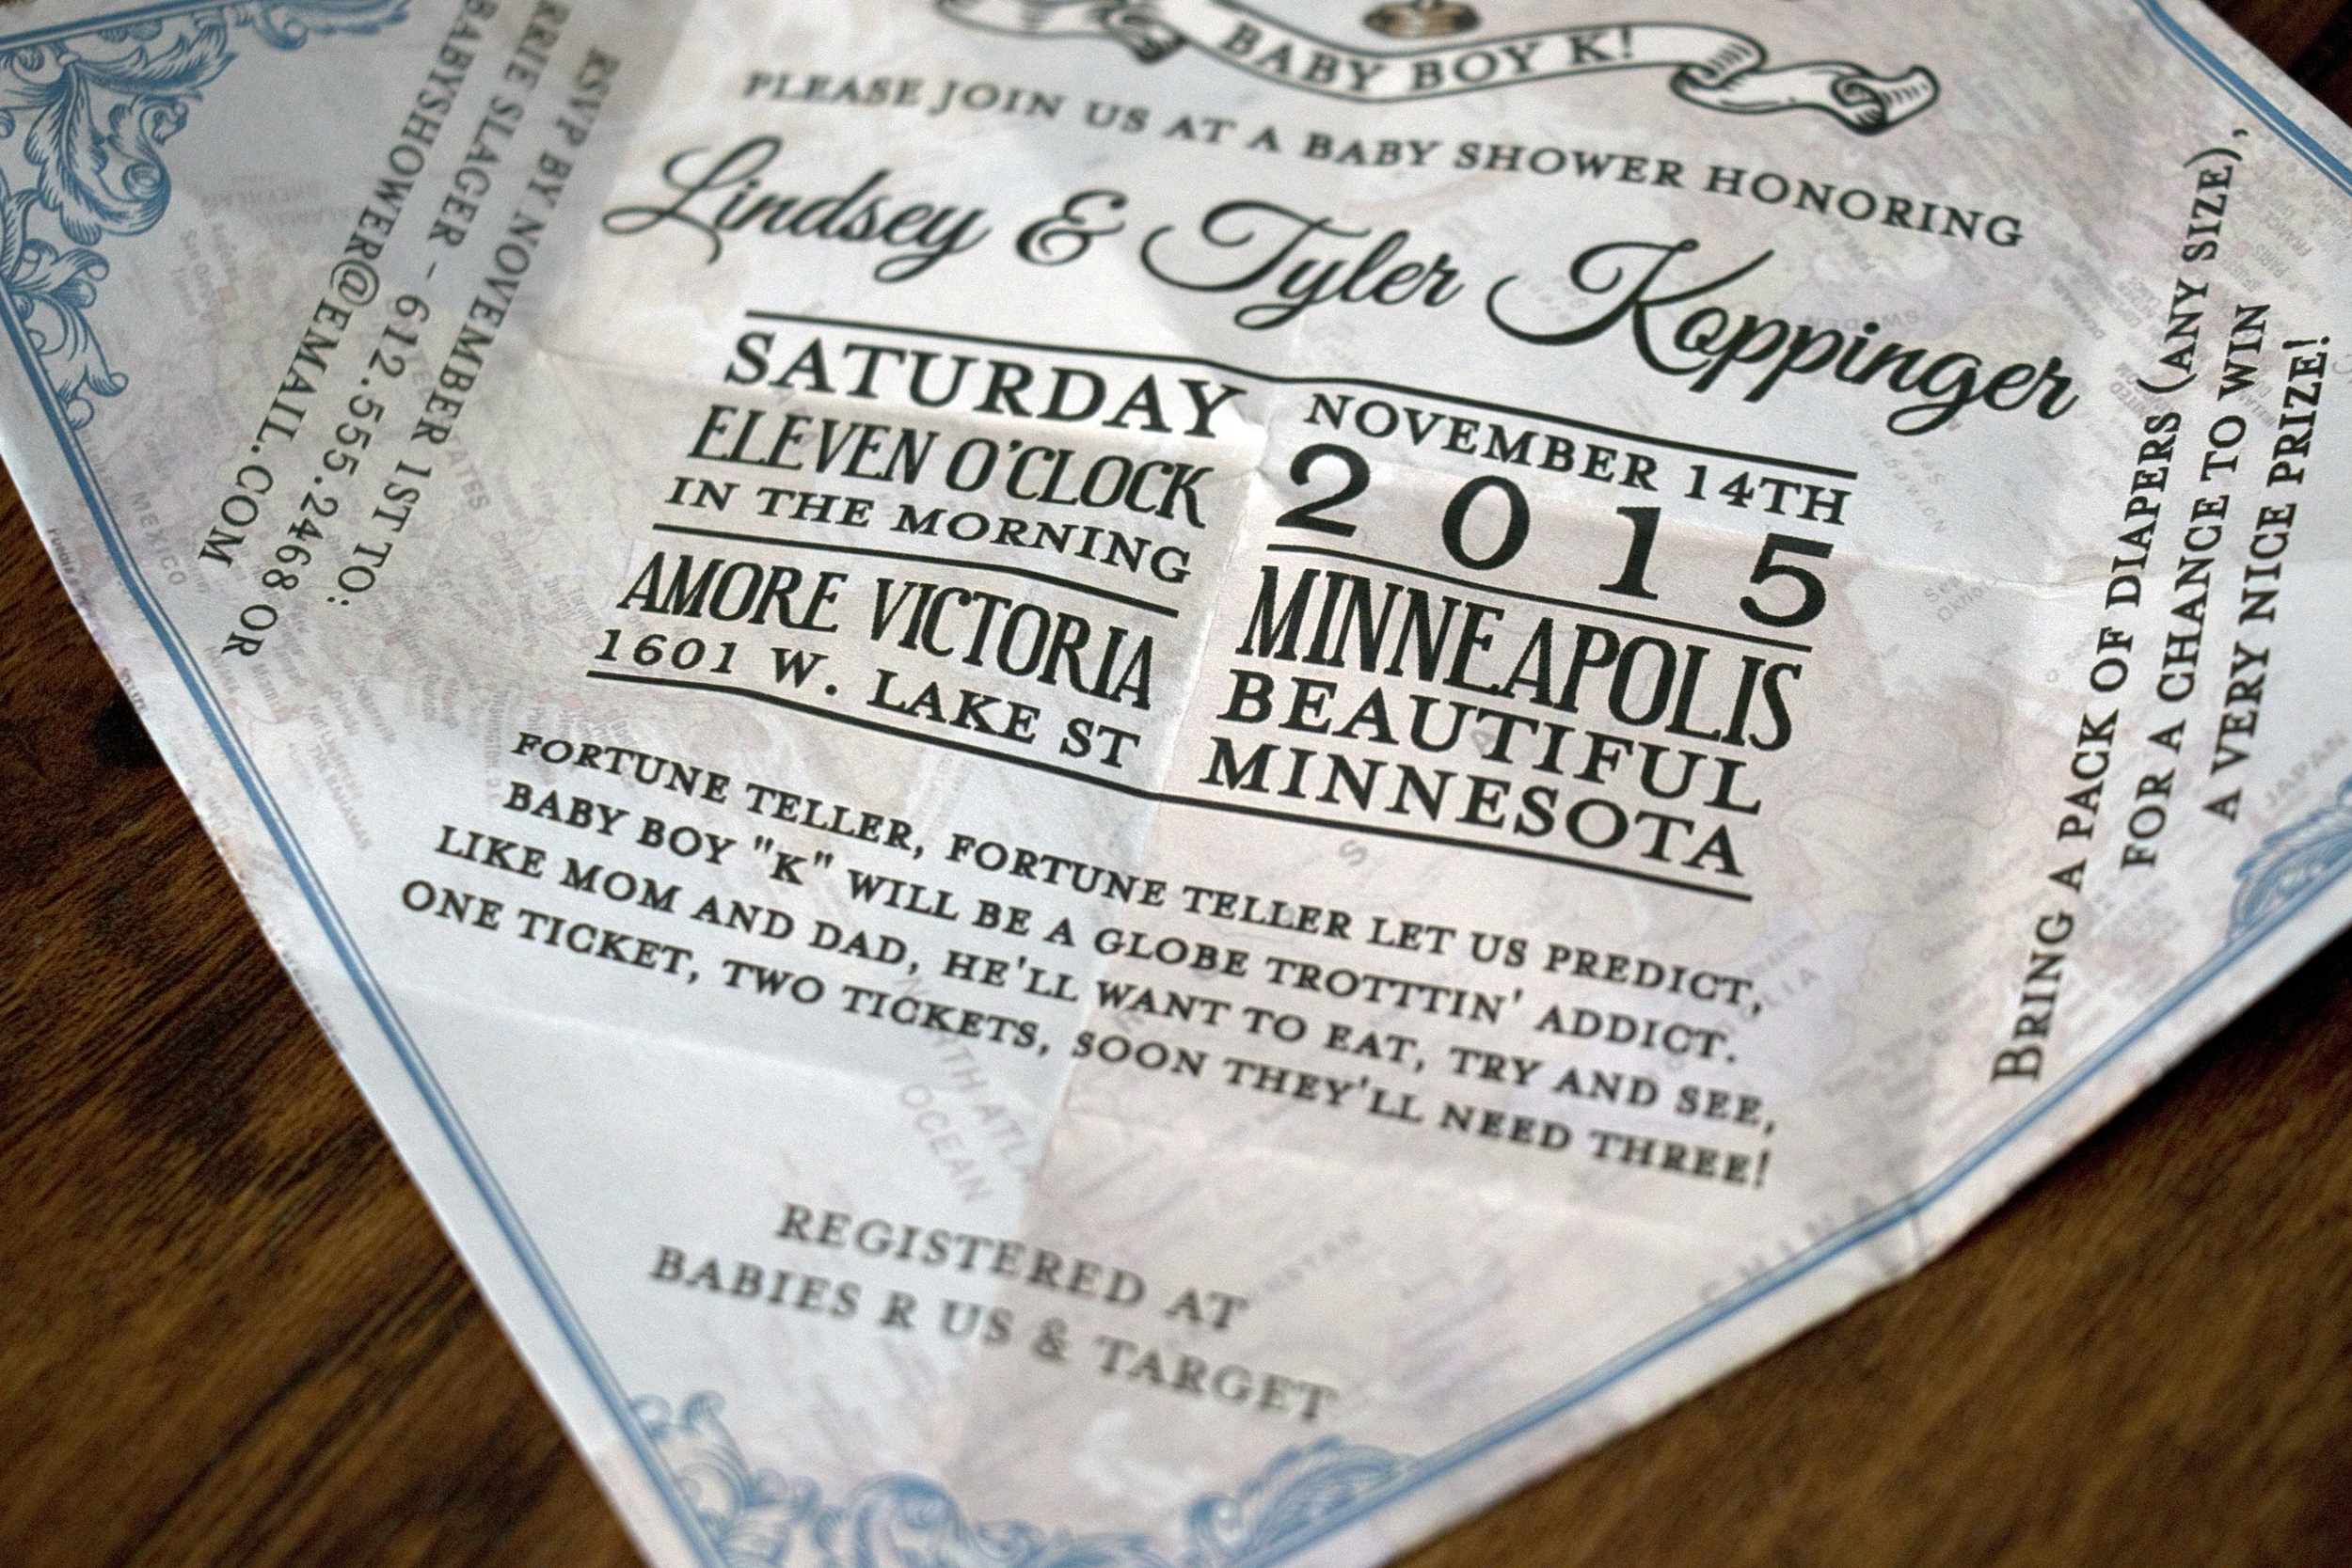 BABY BOY K!
PLEASE JOIN US AT A BABY SHOWER HONORING
Lindsey & Tyler Koppinger
SATURDAY
ELEVEN O'CLOCK
IN THE MORNING
AMORE VICTORIA
1601 W. LAKE ST
NOVEMBER 14TH
2015
MINNEAPOLIS
BEAUTIFUL
MINNESOTA
FORTUNE TELLER, FORTUNE TELLER LET US PREDICT,
BABY BOY "K" WILL BE A GLOBE TROTTTIN' ADDICT.
LIKE MOM AND DAD, HE'LL WANT TO EAT, TRY AND SEE,
ONE TICKET, TWO TICKETS, SOON THEY'LL NEED THREE!
REGISTERED AT
BABIES R US & TARGET
RSVP BY NOVEMBER 1ST TO:
SLAGER - 612.555.2468 OR
BABYSHOWER@EMAIL.COM
BRING A PACK OF DIAPERS (ANY SIZE),
FOR A CHANCE TO WIN
A VERY NICE PRIZE!
MEXICO
OCEAN
CHINA
JAPAN